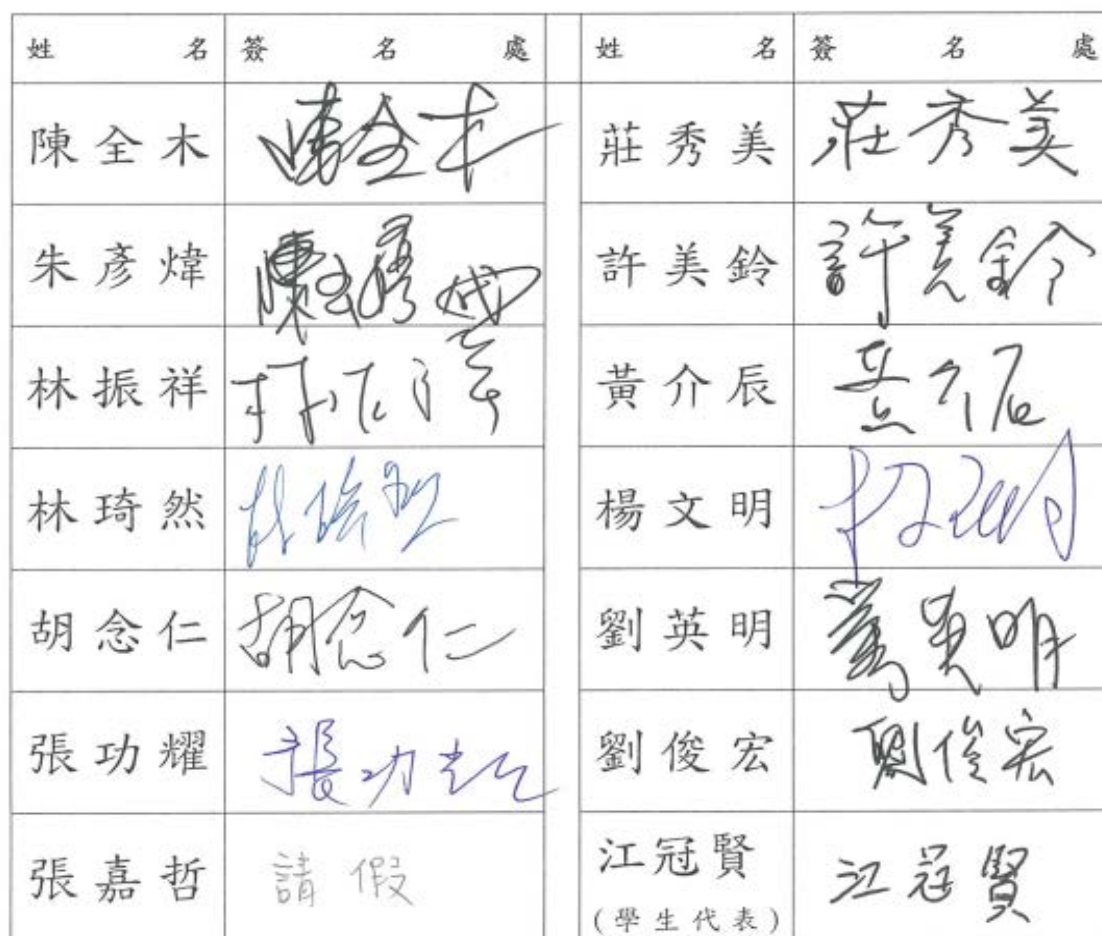 姓名 簽名處 姓名 簽名處
陳全木 陳全木 莊秀美 莊秀美
朱彥煒 許美鈴 許美鈴
林振祥 林振祥 黃介辰 黃介辰
林琦然 林琦然 楊文明 楊文明
胡念仁 胡念仁 劉英明 劉英明
張功耀 張功耀 劉俊宏 劉俊宏
張嘉哲 請假 江冠賢 江冠賢
(學生代表)